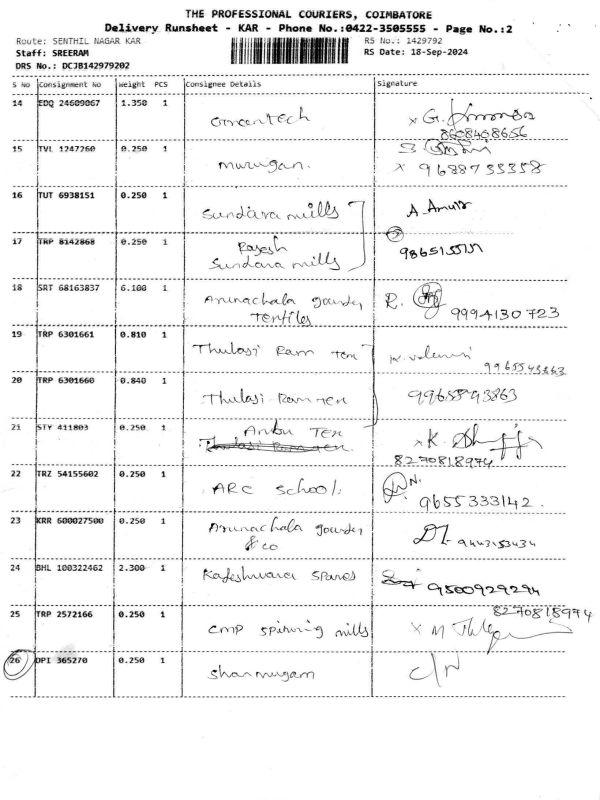 THE PROFESSIONAL COURIERS, COIMBATORE
Delivery Runsheet - KAR - Phone No.:0422-3505555 - Page No.:2
Route: SENTHIL NAGAR KAR RS No.: 1429792
Staff: SREERAM RS Date: 18-Sep-2024
DRS No.: DCJB142979202
S No Consignment No Weight PCS Consignee Details Signature
14 EDQ 24609067 1.350 1 Greentech x G.
8608408656
15 TVL 1247260 0.250 1 murugan. x 9688733358
16 TUT 6938151 0.250 1 Sundara mills A.
17 TRP 8142868 0.250 1 Rajesh
Sundara mills
18 SRT 68163837 6.100 1 Arunachala gounder R.
Textiles 9994130723
19 TRP 6301661 0.810 1 Thulasi Ram Tex K.
9965543863
20 TRP 6301660 0.840 1 Thulasi Ram Tex 9965593863
21 STY 411803 0.250 1 Anbu Tex x K.
8270818974
22 TRZ 54155602 0.250 1 ARC School. 9655333142.
23 KRR 600027500 0.250 1 Arunachala gounder
& co 9443153434
24 BHL 100322462 2.300 1 Rajeshwara Spares 9500929294
8270818974
25 TRP 2572166 0.250 1 CMP spinning mills x M
26 DPI 365270 0.250 1 Shanmugam C/N